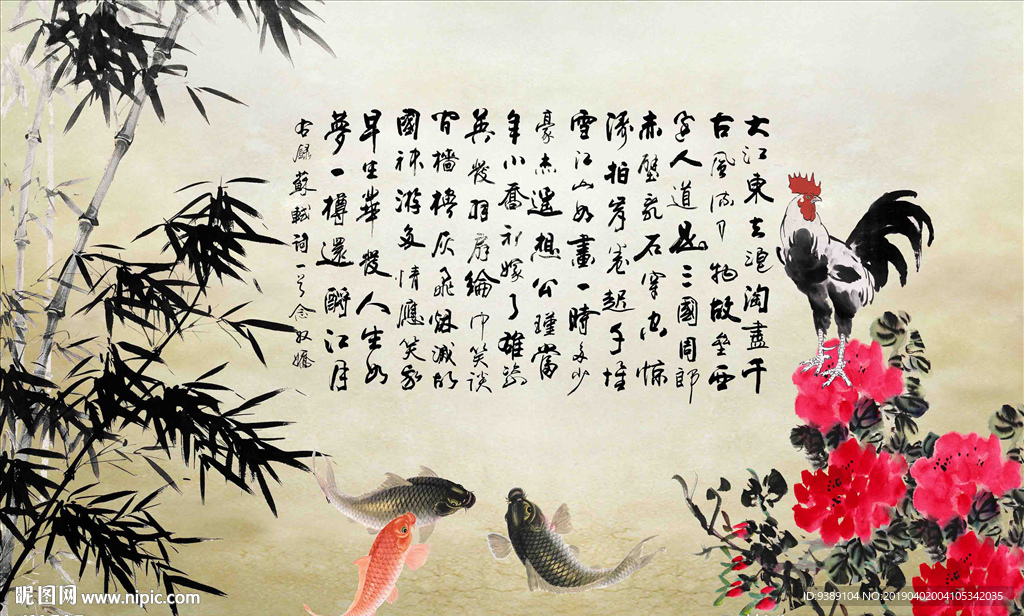 大江東去浪淘盡千
古風流人物故壘西
邊人道是三國周郎
赤壁亂石穿空驚
濤拍岸卷起千堆
雪江山如畫一時多少
豪杰遥想公瑾當
年小喬初嫁了雄姿
英發羽扇綸巾笑談
間檣櫓灰飛烟滅故
國神游多情應笑我
早生華發人生如
夢一樽還酹江月
右録蘇軾詞一首念奴嬌
昵图网 www.nipic.com
ID:9389104 NO:20190402004105342035